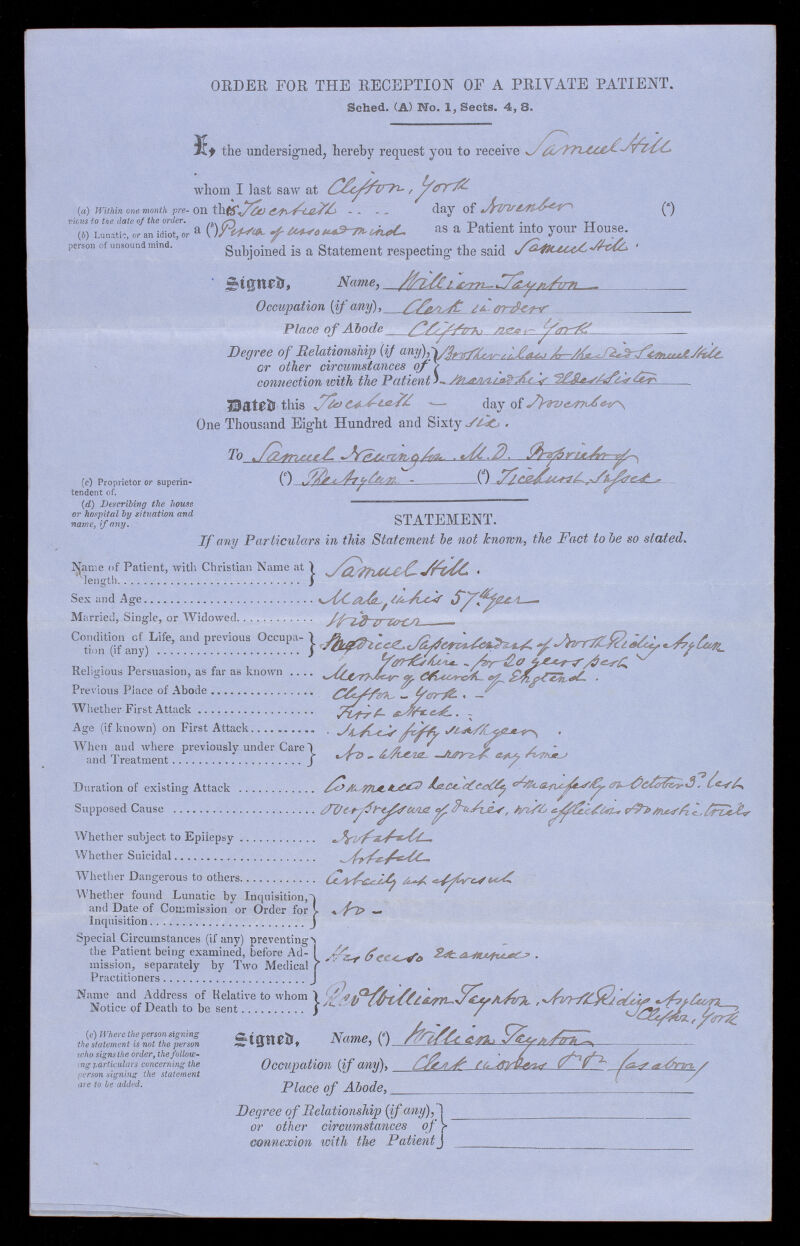 ORDER FOR THE RECEPTION OF A PRIVATE PATIENT.
Sched. (A) No. 1, Sects. 4, 8.
I, the undersigned, hereby request you to receive Samuel Hill
whom I last saw at Clifton, York
(a) Within one month previous to the date of the order.
on this Twentieth .. .. day of November (a)
(b) Lunatic, or an idiot, or person of unsound mind.
a (b) Person of unsound mind as a Patient into your House.
Subjoined is a Statement respecting the said Samuel Hill.
Signed, Name, William Taynton
Occupation (if any), Clerk in orders
Place of Abode Clifton near York
Degree of Relationship (if any), Brother in law to the said Samuel Hill
or other circumstances of
connection with the Patient - married his Eldest Sister
Dated this Twentieth — day of November
One Thousand Eight Hundred and Sixty six.
To Samuel Newington. M.D. Proprietor of
(c) The Asylum - (d) Ticehurst, Sussex
(c) Proprietor or superintendent of.
(d) Describing the house or hospital by situation and name, if any.
STATEMENT.
If any Particulars in this Statement be not known, the Fact to be so stated.
Name of Patient, with Christian Name at length Samuel Hill.
Sex and Age Male, in his 57th year
Married, Single, or Widowed Widower
Condition of Life, and previous Occupation (if any) Medical Superintendent of North Riding Asylum
Yorkshire - for 20 years past
Religious Persuasion, as far as known Member of Church of England.
Previous Place of Abode Clifton - York. -
Whether First Attack First attack.
Age (if known) on First Attack In his fifty sixth year.
When and where previously under Care and Treatment No - where - nor at any time
Duration of existing Attack Commenced decidedly & manifestly on October 3d. last
Supposed Cause Over pressure of Duties, with afflictions & Domestic trials
Whether subject to Epilepsy Not at all
Whether Suicidal Not at all
Whether Dangerous to others Certainly not at present
Whether found Lunatic by Inquisition, and Date of Commission or Order for Inquisition No -
Special Circumstances (if any) preventing the Patient being examined, before Admission, separately by Two Medical Practitioners Has been so Examined.
Name and Address of Relative to whom Notice of Death to be sent Revd William Taynton, North Riding Asylum
Clifton, York
(e) Where the person signing the statement is not the person who signs the order, the following particulars concerning the person signing the statement are to be added.
Signed, Name, (e) William Taynton
Occupation (if any), Clerk in orders &c &c (as above)
Place of Abode,
Degree of Relationship (if any),
or other circumstances of
connexion with the Patient